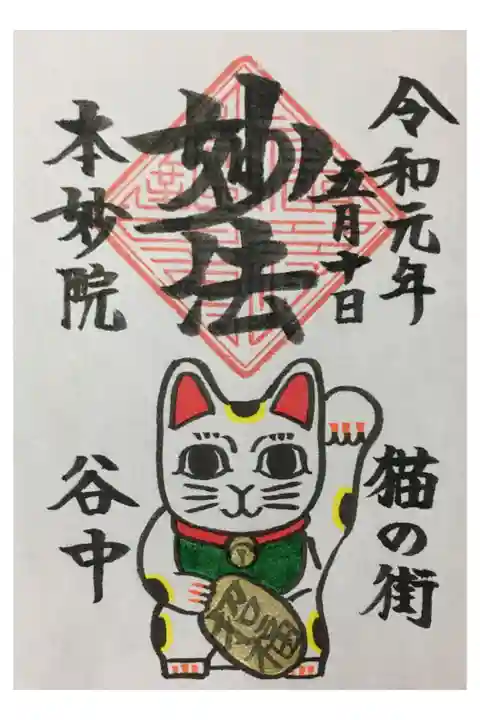 令和元年
五月十日
妙法
本妙院
猫の街
谷中
招福